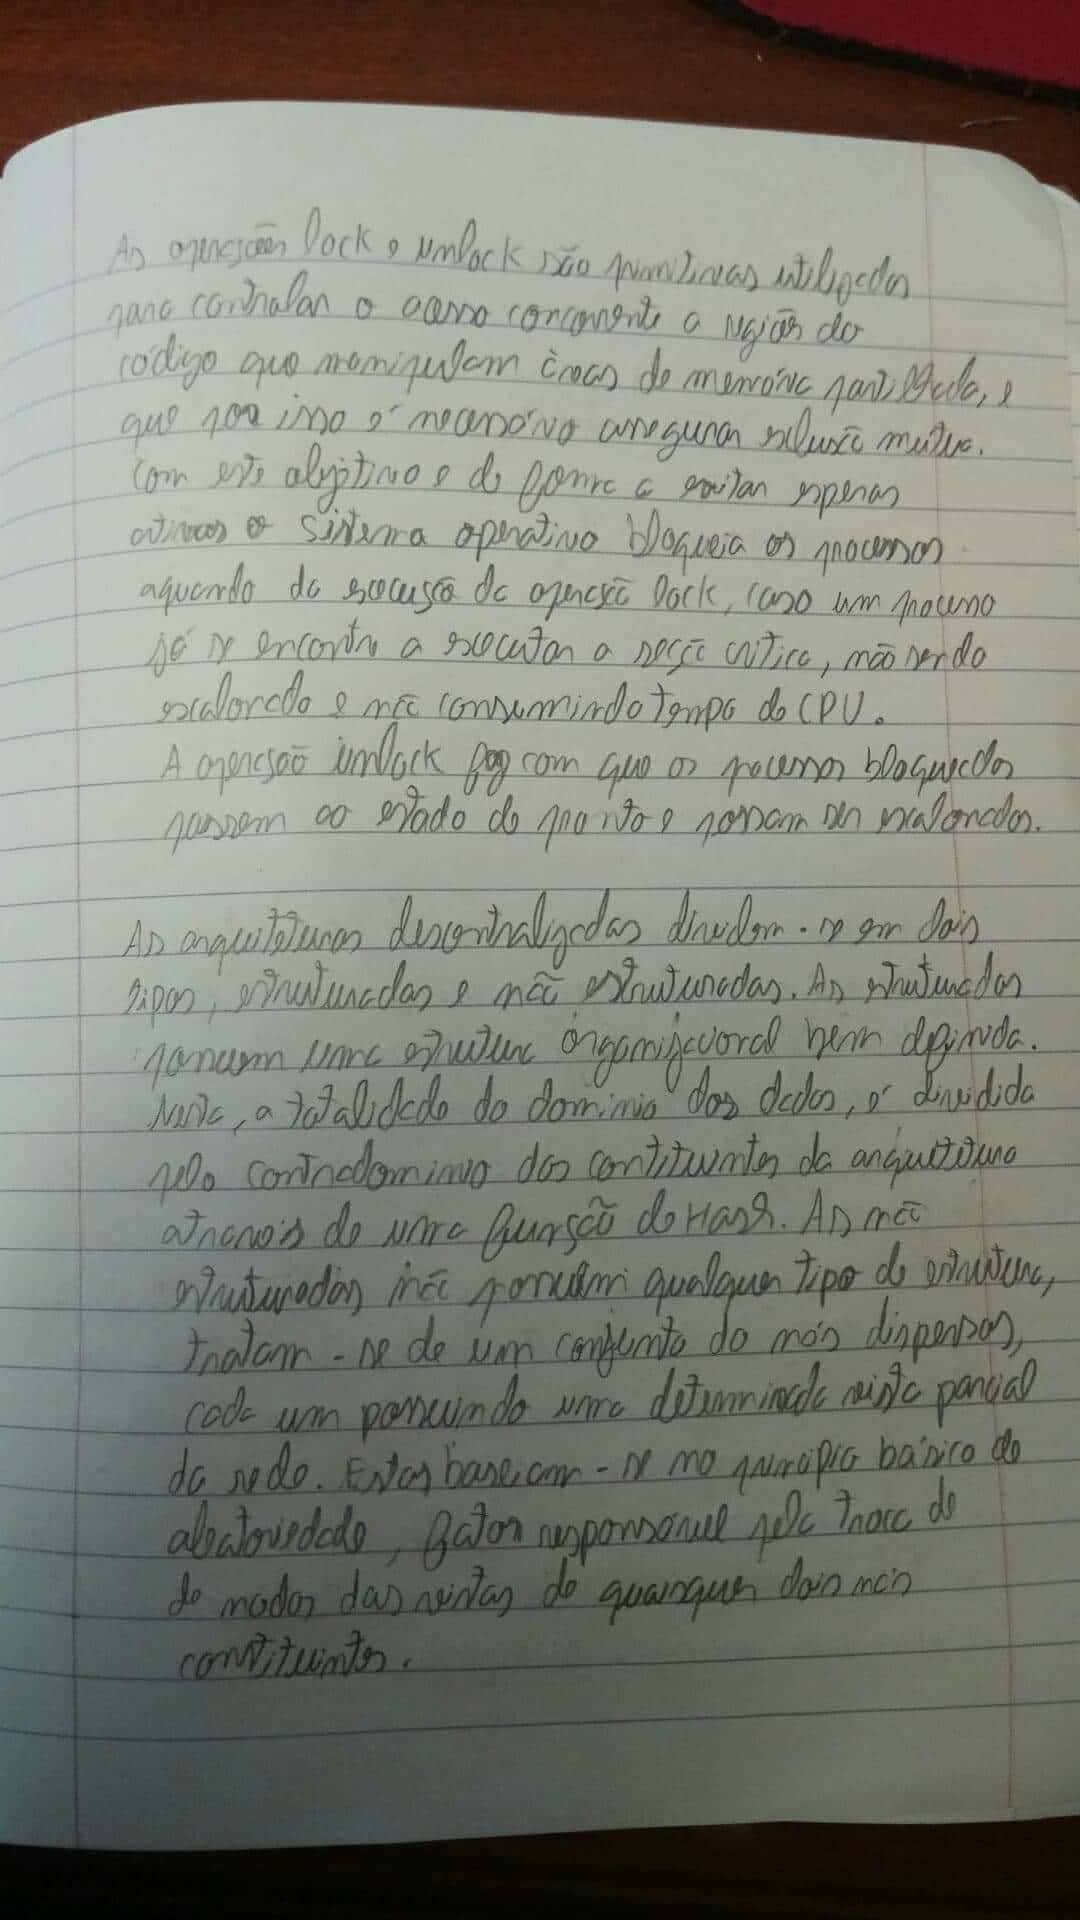 As operações lock e unlock são primitivas utilizadas
para controlar o acesso concorrente a regiões do
código que manipulam áreas de memória partilhada, e
que por isso é necessário assegurar exclusão mutua.
Com este objetivo e de forma a evitar esperas
ativas o sistema operativo bloqueia os processos
aquando da execução da operação lock, caso um processo
já se encontre a executar a secção crítica, não sendo
escalonado e não consumindo tempo do CPU.
A operação unlock faz com que os processos bloqueados
passem ao estado de pronto e possam ser escalonados.
As arquiteturas descentralizadas dividem-se em dois
tipos, estruturadas e não estruturadas. As estruturadas
possuem uma estrutura organizacional bem definida.
Nesta, a totalidade do domínio dos dados, é dividida
pelo contradomínio dos constituintes da arquitetura
através de uma função de Hash. As não
estruturadas não possuem qualquer tipo de estrutura,
tratam-se de um conjunto de nós dispersos,
cada um possuindo uma determinada vista parcial
da rede. Estas baseiam-se no princípio básico de
aleatoriedade, fator responsável pela troca de
de nodos das vistas de quaisquer dois nós
constituintes.